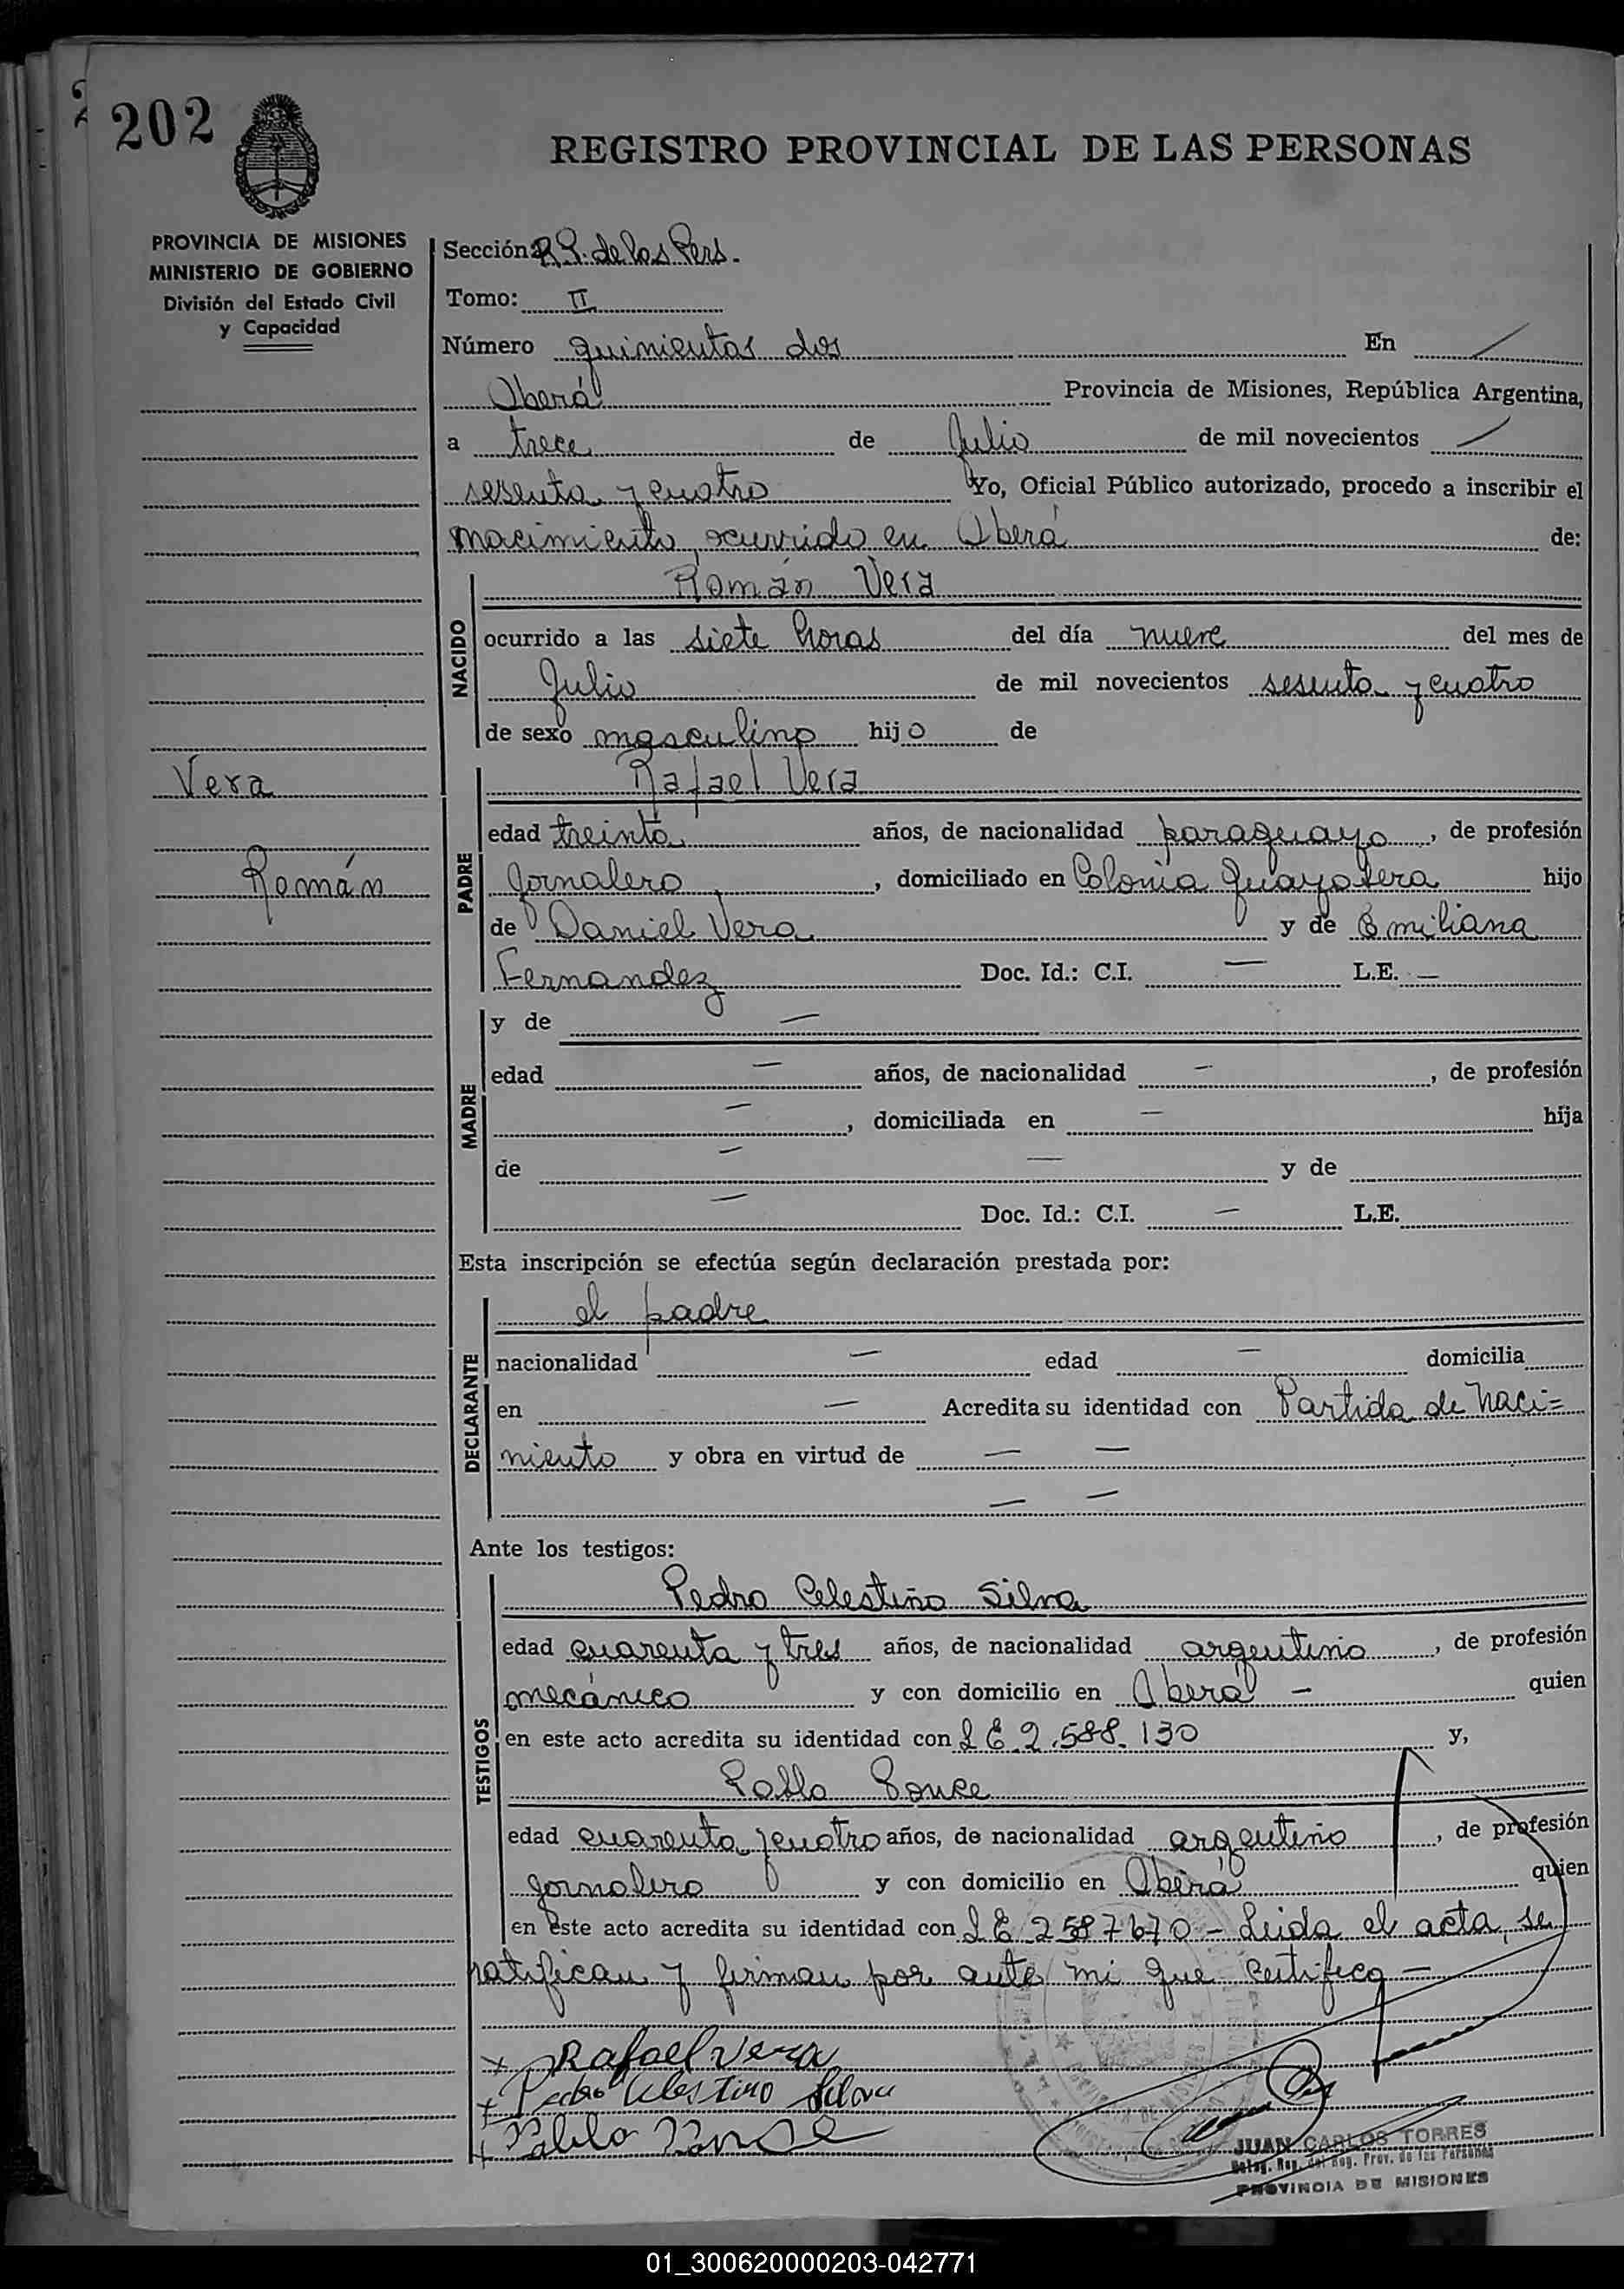 202
REGISTRO PROVINCIAL DE LAS PERSONAS
PROVINCIA DE MISIONES
MINISTERIO DE GOBIERNO
División del Estado Civil
y Capacidad
Vera
Román
Sección R. P. de las Pers.
Tomo: II
Número quinientos dos En
Oberá Provincia de Misiones, República Argentina,
a trece de Julio de mil novecientos
sesenta y cuatro Yo, Oficial Público autorizado, procedo a inscribir el
nacimiento ocurrido en Oberá de:
NACIDO
Román Vera
ocurrido a las siete horas del día nueve del mes de
Julio de mil novecientos sesenta y cuatro
de sexo masculino hijo de
PADRE
Rafael Vera
edad treinta años, de nacionalidad paraguayo, de profesión
Jornalero, domiciliado en Colonia Guayabera hijo
de Daniel Vera y de Emiliana
Fernandez Doc. Id.: C.I. — L.E. —
MADRE
y de —
edad — años, de nacionalidad —, de profesión
—, domiciliada en — hija
de — — y de
— Doc. Id.: C.I. — L.E.
Esta inscripción se efectúa según declaración prestada por:
DECLARANTE
el padre
nacionalidad — edad — domicilia
en — Acredita su identidad con Partida de Naci=
miento y obra en virtud de — —
— —
Ante los testigos:
TESTIGOS
Pedro Celestino Silva
edad cuarenta y tres años, de nacionalidad argentino, de profesión
mecánico y con domicilio en Oberá – quien
en este acto acredita su identidad con L E 2.588.130 y,
Pablo Ponce
edad cuarenta y cuatro años, de nacionalidad argentino, de profesión
jornalero y con domicilio en Oberá quien
en este acto acredita su identidad con L E 2587670 – Leida el acta, se
ratifican y firman por ante mi que certifico –
x Rafael Vera
+ Pedro Celestino Silva
+ Pablo Ponce
JUAN CARLOS TORRES
Deleg. Reg. del Reg. Prov. de las Personas
PROVINCIA DE MISIONES
01_300620000203-042771